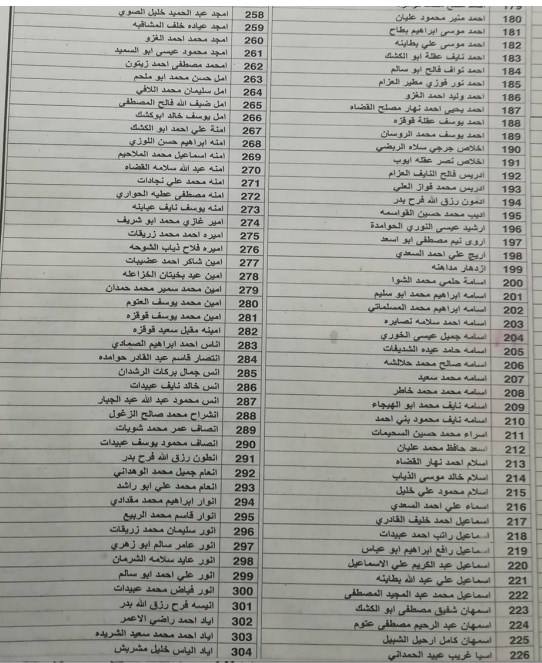 180 احمد منير محمود عليان
181 احمد موسى ابراهيم بطاح
182 احمد موسى علي بطاينه
183 احمد نايف عقلة ابو الكشك
184 احمد نواف فالح ابو سالم
185 احمد نور فوزي مطير العزام
186 احمد وليد احمد الغزو
187 احمد يحيى احمد نهار مصلح القضاه
188 احمد يوسف عقلة قوقزه
189 احمد يوسف محمد الروسان
190 اخلاص جرجي سلاه الربضي
191 اخلاص نصر عقله ايوب
192 ادريس فالح النايف العزام
193 ادريس محمد فواز العلي
194 ادمون رزق الله فرح بدر
195 اديب محمد حسين القواسمه
196 ارشيد عيسى النوري الحوامدة
197 اروى نيم مصطفى ابو اسعد
198 اريج علي احمد السعدي
199 ازدهار مداهنه
200 اسامة حلمي محمد الشوا
201 اسامه ابراهيم محمد ابو سليم
202 اسامه ابراهيم محمد المسلماني
203 اسامه احمد سلامه نصايره
204 اسامه جميل عيسى الخوري
205 اسامه حامد عيده الشديفات
206 اسامه صالح محمد حلالشه
207 اسامه محمد سعيد
208 اسامه محمد محمد خاطر
209 اسامه نايف محمد ابو الهيجاء
210 اسامه نايف محمود بني احمد
211 اسراء محمد حسين السحيمات
212 اسعد حافظ محمد عليان
213 اسلام احمد نهار القضاه
214 اسلام خالد موسى الذياب
215 اسلام محمود علي خليل
216 اسماء علي احمد السعدي
217 اسماعيل احمد خليف القادري
218 اسماعيل راتب احمد عبيدات
219 اسماعيل رافع ابراهيم ابو عباس
220 اسماعيل عبد الكريم علي الاسماعيل
221 اسماعيل علي عبد الله بطاينه
222 اسماعيل محمد عبد المجيد المصطفى
223 اسمهان شفيق مصطفى ابو الكشك
224 اسمهان عبد الرحيم مصطفى عتوم
225 اسمهان كامل ارحيل الشبيل
226 اسيا غريب عبيد الحمداني
258 امجد عبد الحميد خليل الصوي
259 امجد عياده خلف المشاقبه
260 امجد محمد احمد الغزو
261 امجد محمود عيسى ابو السميد
262 امحمد مصطفى احمد زيتون
263 امل حسن محمد ابو ملحم
264 امل سليمان محمد اللافي
265 امل ضيف الله فالح المصطفى
266 امل يوسف خالد ابوكشك
267 امنة علي احمد ابو الكشك
268 امنه ابراهيم حسن اللوزي
269 امنه اسماعيل محمد الملاحيم
270 امنه عبد الله سلامه القضاه
271 امنه محمد علي نجادات
272 امنه مصطفى عطيه الحواري
273 امنه يوسف نايف عبابنه
274 امير غازي محمد ابو شريف
275 اميره احمد محمد زريقات
276 اميره فلاح ذياب الشوحه
277 امين شاكر احمد عضيبات
278 امين عيد بخيتان الخزاعله
279 امين محمد سمير محمد حمدان
280 امين محمد يوسف العتوم
281 امين محمد يوسف قوقزه
282 امينه مقبل سعيد قوقزه
283 اناس احمد ابراهيم الصمادي
284 انتصار قاسم عبد القادر حوامده
285 انس جمال بركات الرشدان
286 انس خالد نايف عبيدات
287 انس محمود عبد الله عبد الجبار
288 انشراح محمد صالح الزغول
289 انصاف عمر محمد شويات
290 انصاف محمود يوسف عبيدات
291 انطون رزق الله فرح بدر
292 انعام جميل محمد الوهداني
293 انعام محمد علي ابو راشد
294 انوار ابراهيم محمد مقدادي
295 انوار قاسم محمد الربيع
296 انور سليمان محمد زريقات
297 انور عامر سالم ابو زهري
298 انور عايد سلامه الشرمان
299 انور علي احمد ابو سالم
300 انور فياض محمد عبيدات
301 انيسه فرح رزق الله بدر
302 اياد احمد راضي الاعمر
303 اياد احمد محمد سعيد الشريده
304 اياد الياس خليل مشربش